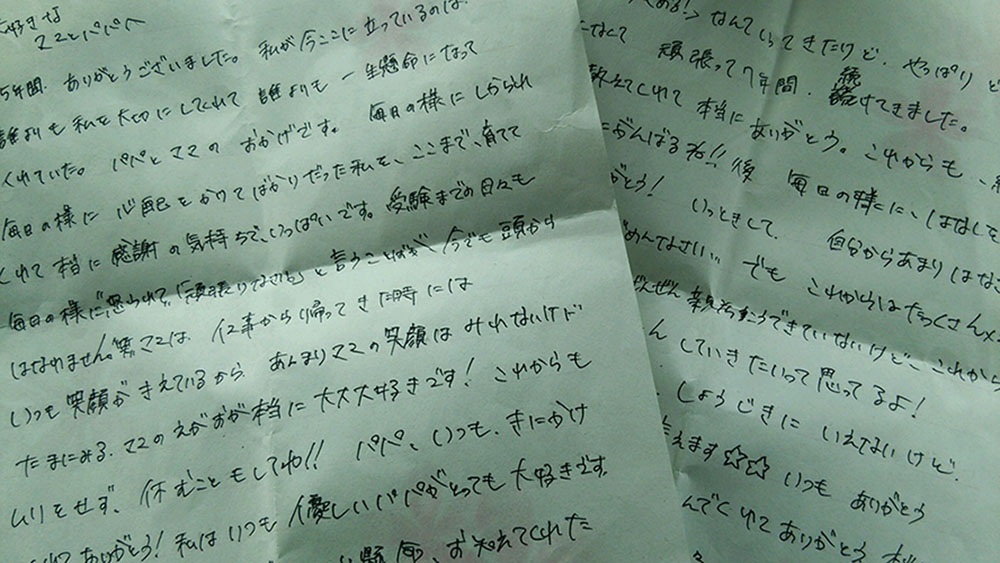 大好きな
ママとパパへ
5年間、ありがとうございました。私が今ここに立っているのは、
誰よりも私を大切にしてくれて誰よりも一生懸命になって
くれていた。パパとママのおかげです。毎日の様にしかられ
毎日の様に心配をかけてばかりだった私を、ここまで、育てて
くれて本当に感謝の気持ちで、いっぱいです。受験までの日々も
毎日の様に怒られて、「頑張りなさい」と言うことばが今でも頭から
はなれません。笑。ママは、仕事から帰ってきた時には
いつも笑顔がきえているから あんまりママの笑顔はみれないけど
たまにみる、ママのえがおが本当に大大大好きです! これからも
ムリをせず、休むこともしてね!! パパ、いつも、きにかけ
くれてありがとう!私はいつも優しいパパがとっても大好きです。
懸命、お知えてくれた
なんていってきたけど、やっぱり
なくて 頑張って7年間、続
けてきました。
教えてくれて本当にありがとう。これからも、
がんばるね!! 後 毎日の様に、はなしを
がとう! いっときして、 自分からあまりはな
ごめんなさい、、でもこれからはたっくさん
ぜんぜん親孝こうできていないけど、これから
していきたいって思ってるよ!
しょうじきにいえないけど、
言えます☆☆いつもありがとう
んでくれてありがとう